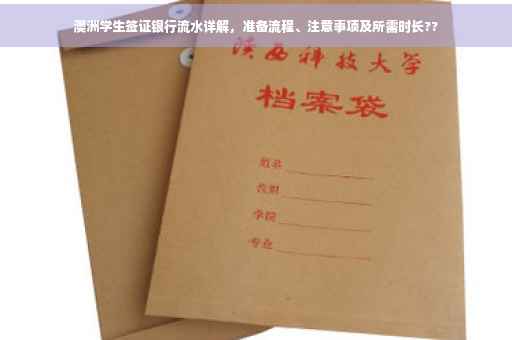 澳洲学生签证银行流水详解，准备流程、注意事项及所需时长??
陕西科技大学
档案袋
学院
专业